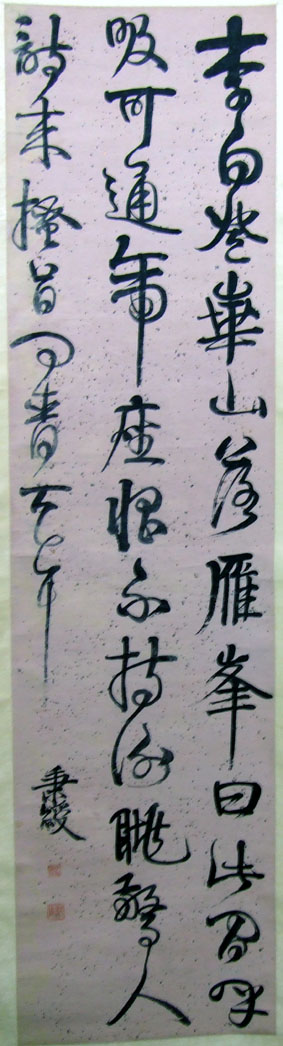 李白登華山落雁峯曰此間呼
吸可通帝座恨不持謝朓驚人
詩來搔首問青天耳
秉綬